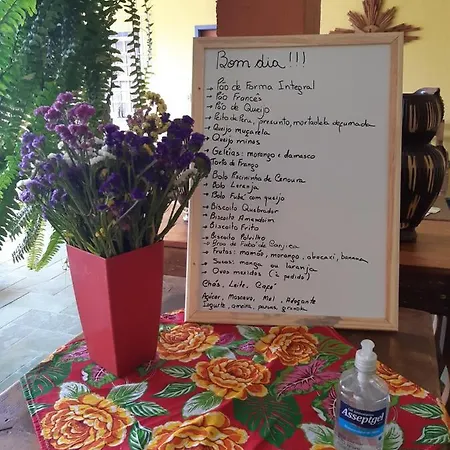 Bom dia!!!
→ Pão de Forma Integral
→ Pão Francês
→ Pão de Queijo
→ Peito de Peru, presunto, mortadela defumada
→ Queijo muçarela
→ Queijo minas
→ Geleias: morango e damasco
→ Torta de Frango
→ Bolo Piscininha de Cenoura
→ Bolo Laranja
→ Bolo Fubá com queijo
→ Biscoito Quebrador
→ Biscoito Amendoim
→ Biscoito Frito
→ Biscoito Polvilho
→ Broa de Fubá de Canjica
→ Frutas: mamão, morango, abacaxi, banana
→ Sucos: manga ou laranja
→ Ovos mexidos (à pedido)
Chás, Leite, Café
Açúcar, Mascavo, Mel, Adoçante
Iogurte, aveia, granola
Asseptgel